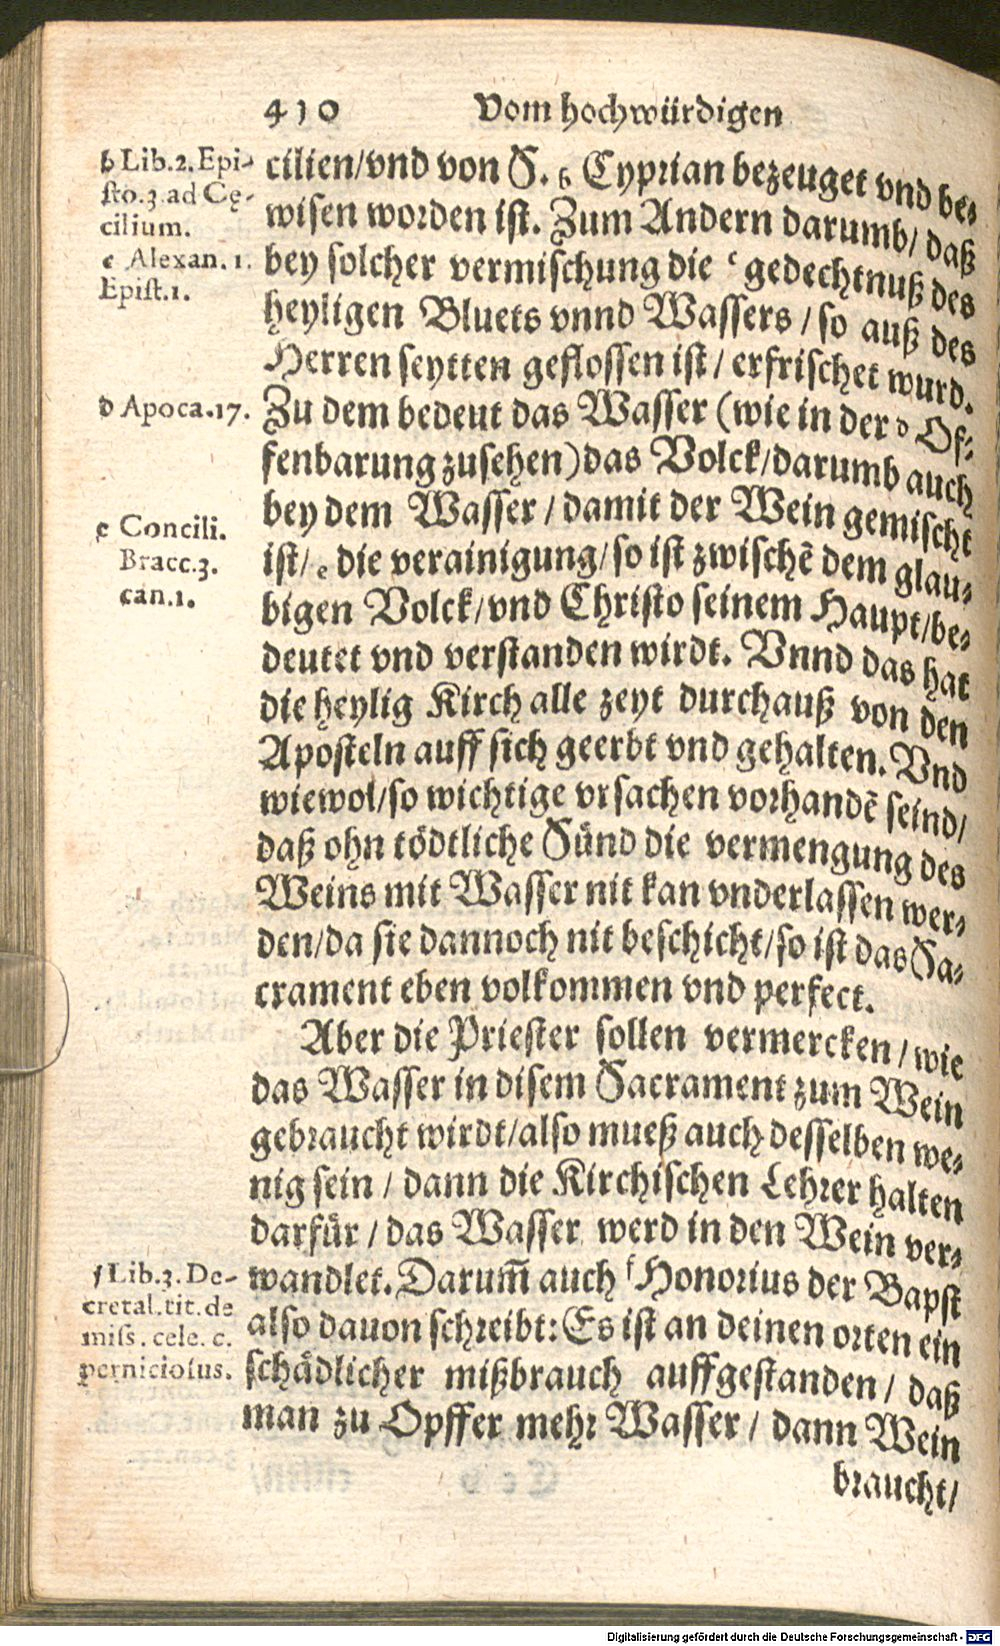 410 Vom hochwürdigen
b Lib.2. Epi-
sto.3. ad Cę-
cilium.
c Alexan. 1.
Epist.1.
d Apoca.17.
e Concili.
Bracc.3.
can.1.
f Lib.3. De-
cretal.tit.de
miss. cele. c.
perniciosus.
cilien/vnd von S. b Cyprian bezeuget vnd be-
wisen worden ist. Zum Andern darumb/ daß
bey solcher vermischung die c gedechtnuß des
heyligen Bluets vnnd Wassers / so auß des
Herren seytten geflossen ist / erfrischet wurd.
Zu dem bedeut das Wasser (wie in der d Of-
fenbarung zusehen) das Volck/darumb auch
bey dem Wasser / damit der Wein gemischt
ist/ e die verainigung/so ist zwischē dem glau-
bigen Volck/vnd Christo seinem Haupt/be-
deutet vnd verstanden wirdt. Vnnd das hat
die heylig Kirch alle zeyt durchauß von den
Aposteln auff sich geerbt vnd gehalten. Vnd
wiewol/so wichtige vrsachen vorhandē seind/
daß ohn tödtliche Sünd die vermengung des
Weins mit Wasser nit kan vnderlassen wer-
den/da sie dannoch nit beschicht/so ist das Sa-
crament eben volkommen vnd perfect.
Aber die Priester sollen vermercken / wie
das Wasser in disem Sacrament zum Wein
gebraucht wirdt/also mueß auch desselben we-
nig sein / dann die Kirchischen Lehrer halten
darfür / das Wasser werd in den Wein ver-
wandlet. Darum̄ auch f Honorius der Bapst
also dauon schreibt: Es ist an deinen orten ein
schädlicher mißbrauch auffgestanden / daß
man zu Opffer mehr Wasser / dann Wein
braucht/
Digitalisierung gefördert durch die Deutsche Forschungsgemeinschaft - DFG